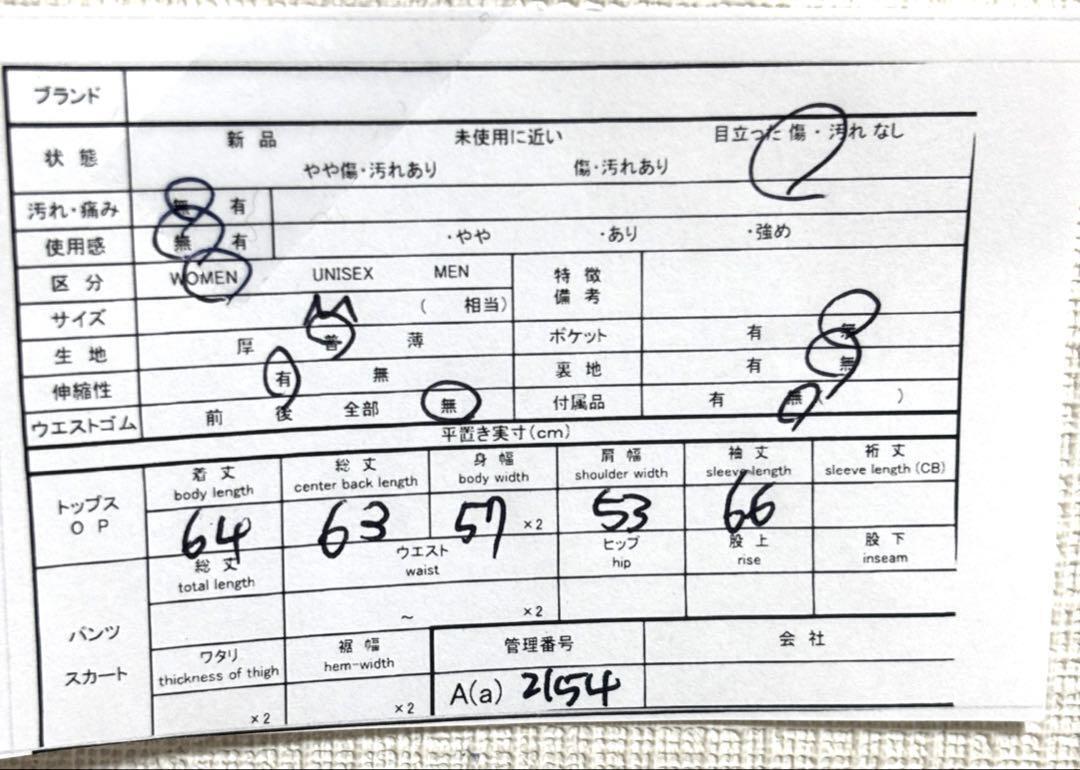 ブランド
状態 新品 未使用に近い 目立った傷・汚れなし
やや傷・汚れあり 傷・汚れあり
汚れ・痛み 無 有
使用感 無 有 ・やや ・あり ・強め
区分 WOMEN UNISEX MEN 特徴
備考
サイズ M ( 相当)
生地 厚 普 薄 ポケット 有 無
伸縮性 有 無 裏地 有 無
ウエストゴム 前 後 全部 無 付属品 有 無 ( )
平置き実寸(cm)
トップス
OP
着丈 総丈 身幅 肩幅 袖丈 裄丈
body length center back length body width shoulder width sleeve length sleeve length (CB)
64 63 57 ×2 53 66
パンツ
スカート
総丈 ウエスト ヒップ 股上 股下
total length waist hip rise inseam
~ ×2
ワタリ 裾幅 管理番号 会社
thickness of thigh hem-width
×2 ×2 A(a) 2154